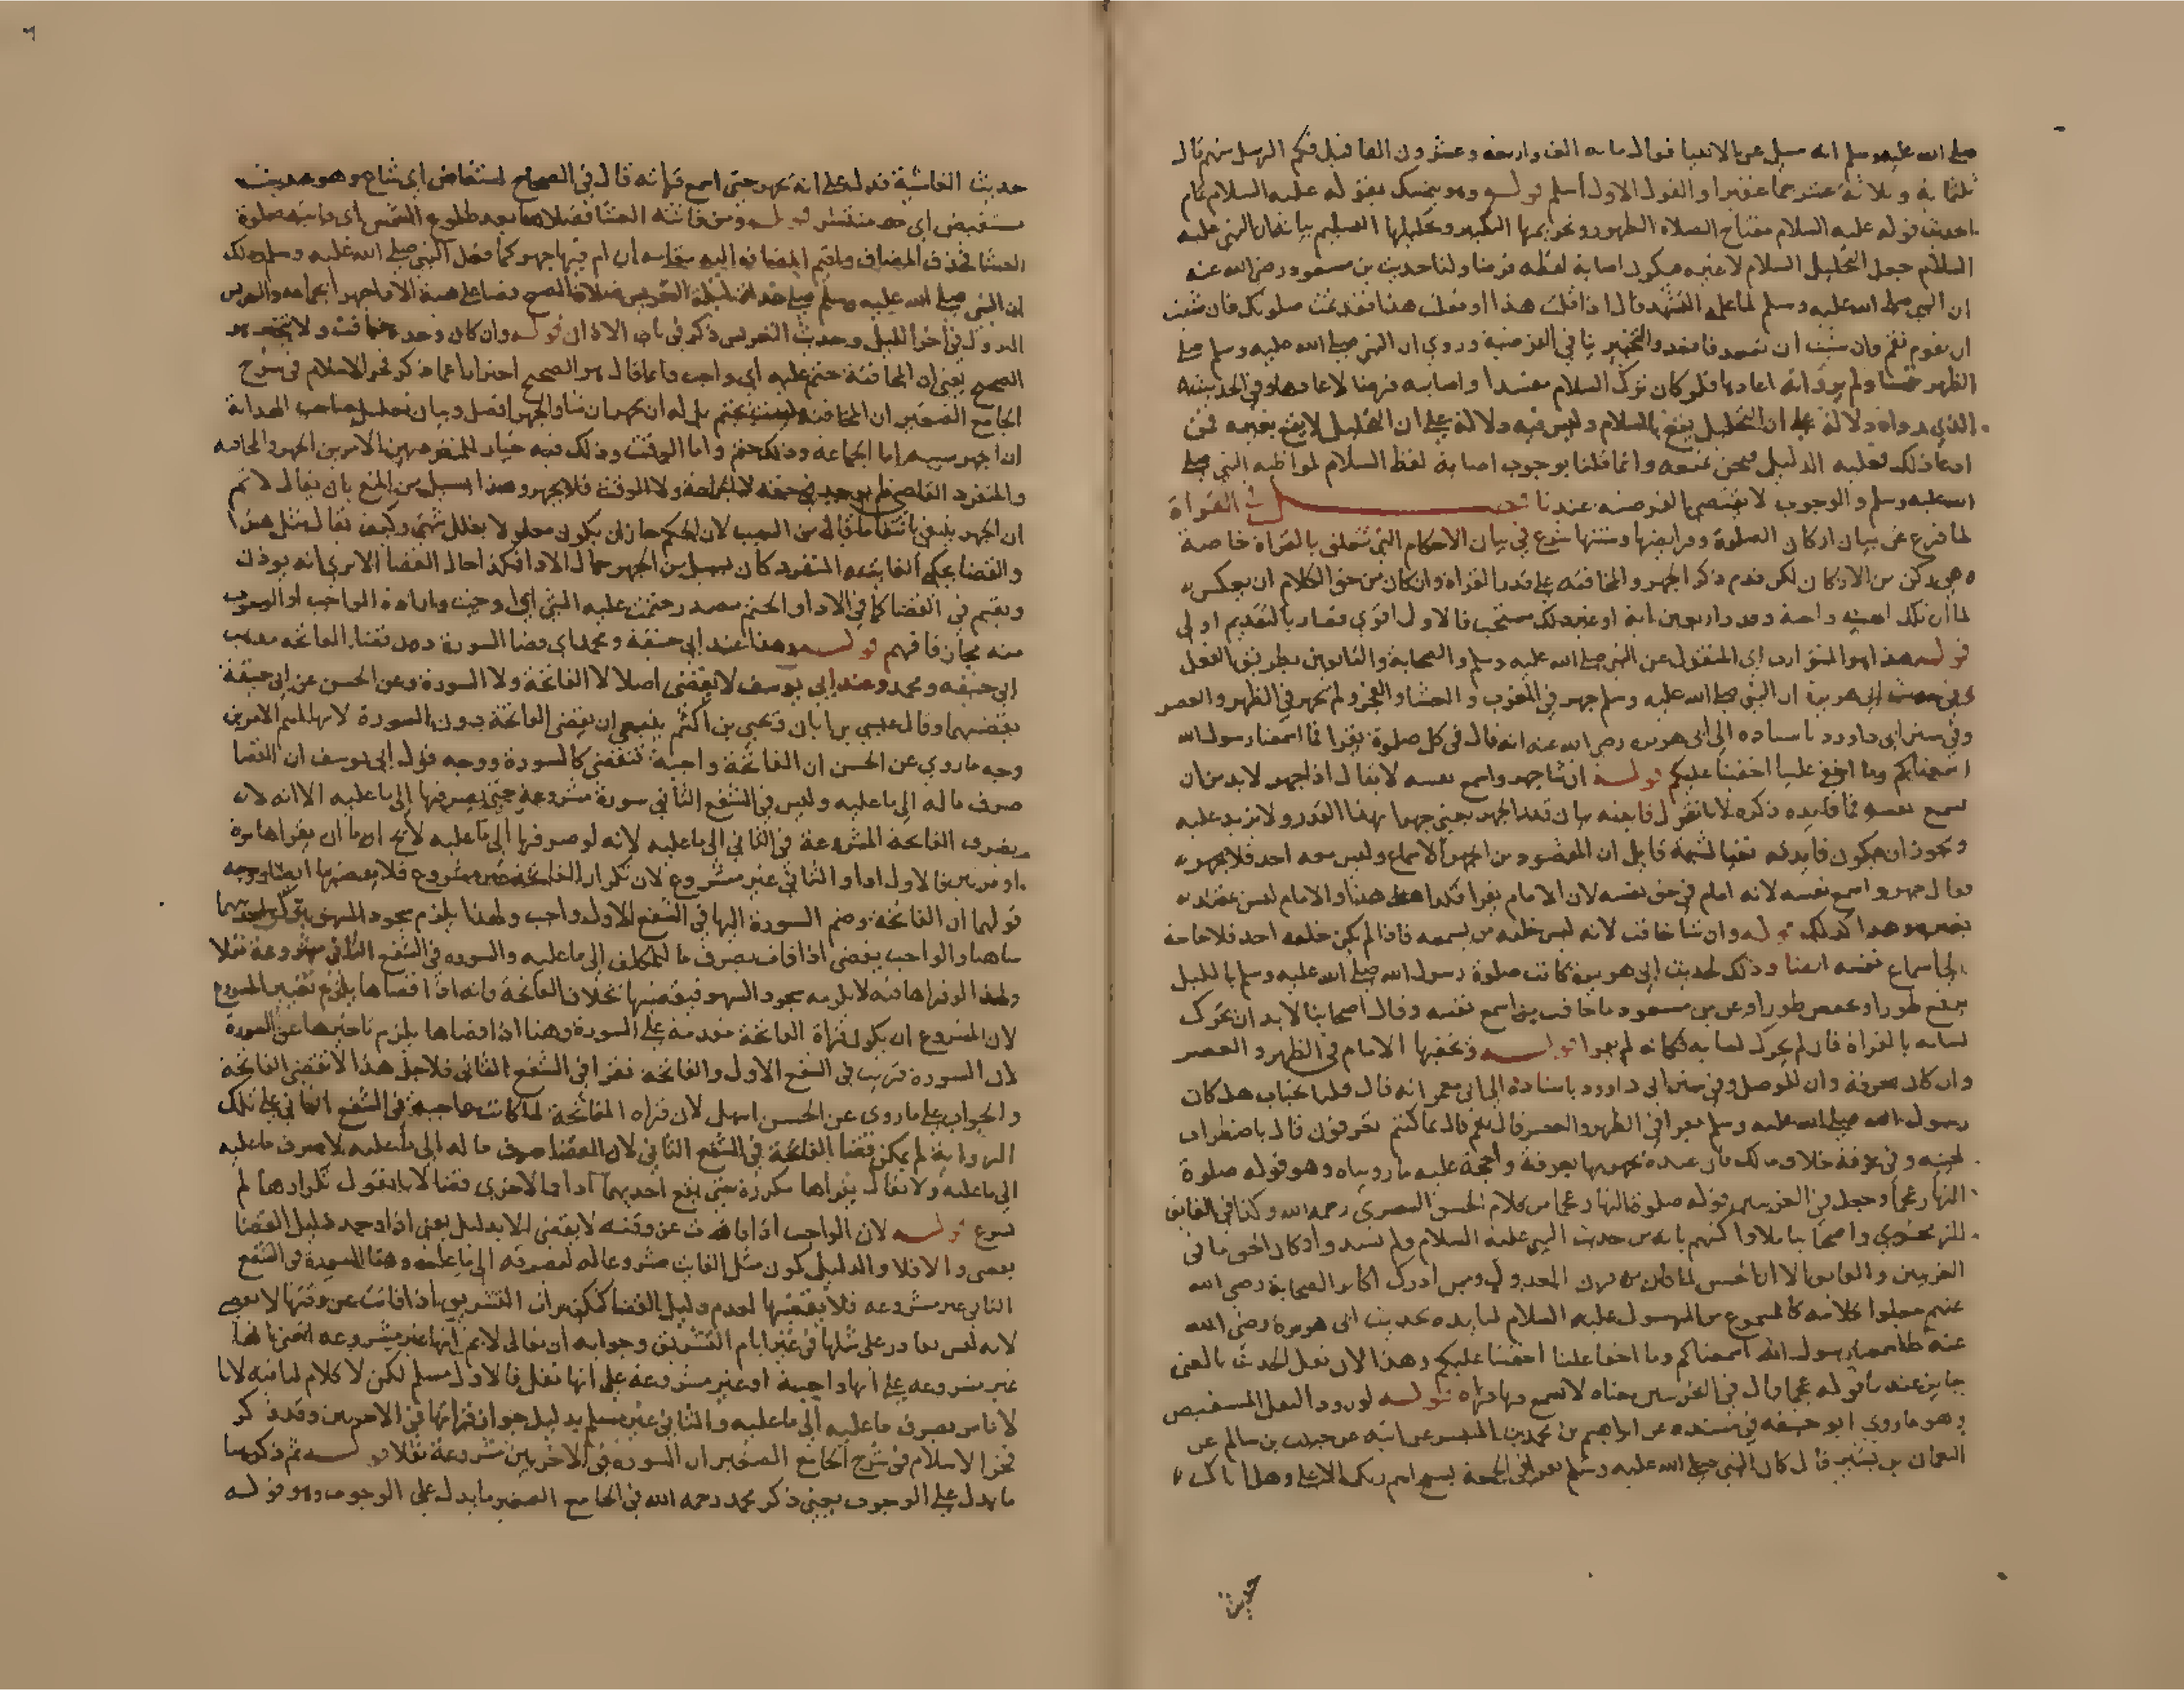 صلى الله عليه وسلم انه سيل عن الانبيا فقال مايه الف واربعه وعشرون الفا فقيل فكم الرسل منهم قال
ثلثمايه وثلاثة عشر جما غفيرا والقول الاول اسلم قوله وهو يتمسك بقوله عليه السلام تمام
الحديث قوله عليه السلام مفتاح الصلاة الطهور وتحريمها التكبير وتحليلها التسليم بيانه ان النبي عليه
السلام جعل التحليل السلام لا غيره فيكون اصابة لفظه فرضا ولنا حديث بن مسعود رضي الله عنه
ان النبي صلى الله عليه وسلم لما علمه التشهد قال اذا قلت هذا او فعلت هذا فقد تمت صلوتك فان شئت
ان تقوم فقم وان شئت ان تقعد فاقعد والتخيير ينافي الفرضية وروي ان النبي صلى الله عليه وسلم صلى
الظهر خمسا ولم يرو انه اعادها فلو كان ترك السلام مفسدا واصابته فرضا لاعادها وفي الحديث
الذي رواه دلالة على ان التحليل يقع بالسلام وليس فيه دلالة على ان التحليل لا يقع بغيره فمن
ادعا ذلك فعليه الدليل فنحن نمنعه وانما قلنا بوجوب اصابة لفظ السلام لمواظبة النبي صلى
الله عليه وسلم والوجوب لا يقتضي الفرضية عندنا فصل في القراة
لما فرغ عن بيان اركان الصلوة وفرايضها وسننها شرع في بيان الاحكام التي تتعلق بالقراة خاصة
وهي ركن من الاركان لكن قدم ذكر الجهر والمخافتة على قدر القراة وان كان من حق الكلام ان يعكس
لما ان تلك واجبة وقدر اربعين اية او غير ذلك مستحب فالاول اقوي فصار بالتقديم اولى
قوله هذا هو المتوارث اي المنقول عن النبي صلى الله عليه وسلم والصحابة والتابعين بطريق الفعل
ابي هريرة ان النبي صلى الله عليه وسلم جهر في المغرب والعشا والفجر ولم يجهر في الظهر والعصر
وفي سنن ابي داوود باسناده الى ابي هريره رضي الله عنه انه قال في كل صلوة يقرا فما اسمعنا رسول الله
اسمعناكم وما اخفى علينا اخفينا عليكم قوله ان شا جهر واسمع نفسه لا يقال اذا جهر لا بد من ان
يسمع نفسه فما فايده ذكره لانا نقول فايدته بيان قدر الجهر يعني جهرا بهذا القدر ولا يزيد عليه
ويجوز ان يكون فايدته نفيا لشبهة قايل ان المقصود من الجهر الاسماع وليس معه احد فلا يجهر
فقال جهر واسمع نفسه لانه امام في حق نفسه لان الامام يقرا فكذا هذا والامام ليس عنده
بغيره وهذا كذلك قوله وان شا خافت لانه ليس خلفه من يسمعه فاذا لم يكن خلفه احد فلا حاجة
الى اسماع نفسه ايضا وذلك لحديث ابي هريرة كانت صلوة رسول الله صلى الله عليه وسلم بالليل
يرفع طورا ويخفض طورا وعن بن مسعود ما خافت من اسمع نفسه وقال اصحابنا لا بد ان يحرك
لسانه بالقراة فان لم يحرك لسانه فكانه لم يقرا قوله ويخفيها الامام في الظهر والعصر
وان كان بعرفة وان للوصل وفي سنن ابي داوود باسناده الى ابي معمر انه قال قلنا لخباب هل كان
رسول الله صلى الله عليه وسلم يقرا في الظهر والعصر قال نعم قال بما كنتم تعرفون قال باضطراب
لحيته وفي عرفة خلاف مالك فان عنده يجهر بها بعرفة والحجة عليه ما رويناه وهو قوله صلوة
النهار عجما وجعل في الغريبين قوله صلوة النهار عجما من كلام الحسن البصري رحمه الله وكذا في الفايق
للزمخشري واصحابنا ملاوا كتبهم بانه من حديث النبي عليه السلام ولم يسندوه وان كان الحق ما في
الغريبين والفايق الا ان الحسن لما كان من قرن العدول وممن ادرك اكابر الصحابة رضي الله
عنهم جعلوا كلامه كالمسموع من الرسول عليه السلام لتاييده بحديث ابي هريرة رضي الله
عنه فما اسمعنا رسول الله اسمعناكم وما اخفا علينا اخفينا عليكم وهذا لان نقل الحديث بالمعنى
جايز عندنا قوله عجما قال في الغريبين معناه لا تسمع فيها قراه قوله لورود النقل المستفيض
وهو ما روي ابو حنيفه في مسنده عن ابراهيم بن محمد بن المنتشر عن ابيه عن حبيب بن سالم عن
النعمان بن بشير قال كان النبي صلى الله عليه وسلم يقرا في الجمعة بسبح اسم ربك الاعلى وهل اتاك
حديث
حديث الغاشية فدل على انه يجهر حتى اسمع قراته قال في الصحاح استفاض اي شاع وهو حديث
مستفيض اي منتشر قوله ومن فاتته العشا فصلاها بعد طلوع الشمس اي فاتته صلوة
العشا فحذف المضاف واقيم المضاف اليه مقامه ان ام فيها جهر كما فعل النبي صلى الله عليه وسلم وذلك
ان النبي صلى الله عليه وسلم صلى غداة ليلة التعريس صلاة الصبح قضا على هيئة الادا جهرا بجماعه والتعريس
النزول في اخر الليل وحديث التعريس ذكر في باب الاذان قوله وان كان وحده خافت ولا يتخير هو
الصحيح يعني ان المخافتة حتم عليه اي واجب وانما قال هو الصحيح احترازا عما ذكر فخر الاسلام في شرح
الجامع الصغير ان المخافتة ليست بحتم بل له ان يجهر ان شا والجهر افضل وبيان تعليل صاحب الهداية
ان الجهر سببه اما الجماعة وذلك حتم واما الوقت وذلك فيه خيار للمنفرد بين الامرين الجهر والمخافته
والمنفرد القاضي لم يوجد في حقه لا الجماعة ولا الوقت فلا يجهر وهذا بسبيل من المنع بان يقال لا نم
ان الجهر ينتفي بانتفا ما قاله من السبب لان الحكم جاز ان يكون معلولا بعلل شتى وكيف يقال مثل هذا
والقضا يحكي الفايت والمنفرد كان بسبيل من الجهر حال الادا فكذا حال القضا الا ترى انه يوذن
ويقيم في القضا كما في الادا والحتم مصدر حتمت عليه الشي اي اوجبت وارادة الواجب او الوجوب
منه مجاز فافهم قوله وهذا عند ابي حنيفة ومحمد اي قضا السورة دون قضا الفاتحه مذهب
ابي حنيفه ومحمد وعند ابي يوسف لا يقضي اصلا لا الفاتحة ولا السورة وعن الحسن عن ابي حنيفة
يقضيهما وقال عيسي بن ابان ويحيي بن اكثم ينبغي ان يقضي الفاتحة بدون السورة لانها اهم الامرين
وجه ما روي عن الحسن ان الفاتحة واجبة فتقضي كالسورة ووجه قول ابي يوسف ان القضا
صرف ما له الى ما عليه وليس في الشفع الثاني سورة مشروعة حتى يصرفها الى ما عليه الا انه لان
يصرف الفاتحة المشروعة في الثاني الى ما عليه لانه لو صرفها الى ما عليه لا يخ اما ان يقراها مرة
او مرتين فالاول ادا والثاني غير مشروع لان تكرار الفاتحة غير مشروع فلا يقضيها ايضا ووجه
قولهما ان الفاتحة وضم السورة اليها في الشفع الاول واجب ولهذا يلزم سجود السهو بترك احديهما
ساهيا والواجب يقضي اذا فات بصرف ما للمكلف الى ما عليه والسوره في الشفع الثاني مشروعة نفلا
ولهذا لو قراها فيه لا يلزمه سجود السهو فيقضيها بخلاف الفاتحة فانه اذا قضاها يلزم تغيير المشروع
لان المشروع ان يكون قراة الفاتحة مقدمة على السورة وهنا اذا قضاها يلزم تاخيرها عن السورة
لان السورة قريت في الشفع الاول والفاتحه تقرا في الشفع الثاني فلاجل هذا لا تقضي الفاتحة
والجواب على ما روي عن الحسن اسهل لان قراه الفاتحة لما كانت واجبة في الشفع الثاني على تلك
الرواية لم يمكن قضا الفاتحة في الشفع الثاني لان القضا صرف ما له الى ما عليه لا صرف ما عليه
الى ما عليه ولا يقال يقراها مكررة حتى يقع احديهما ادا والاخري قضا لانا نقول تكرارها لم
يشرع قوله لان الواجب اذا فات عن وقته لا يقضي الا بدليل يعني اذا وجد دليل القضا
يقضي والا فلا والدليل كون مثل الفايت مشروعا له ليصرفه الى ما عليه وهنا السورة في الشفع
الثاني غير مشروعه فلا يقضيها لعدم دليل القضا كتكبيرات التشريق اذا فاتت عن وقتها لا يقضي
لانه ليس بقادر على مثلها في غير ايام التشريق وجوابه ان يقال لا نم انها غير مشروعه اتعني انها
غير مشروعه على انها واجبة او غير مشروعة على انها نفل فالاول مسلم لكن لا كلام لنا فيه لانا
لا نامر بصرف ما عليه الى ما عليه والثاني غير مسلم بدليل جواز قراتها في الاخريين وقد ذكر
فخر الاسلام في شرح الجامع الصغير ان السورة في الاخريين مشروعة نفلا قوله ثم ذكر هنا
ما يدل على الوجوب يعني ذكر محمد رحمه الله في الجامع الصغير ما يدل على الوجوب وهو قوله